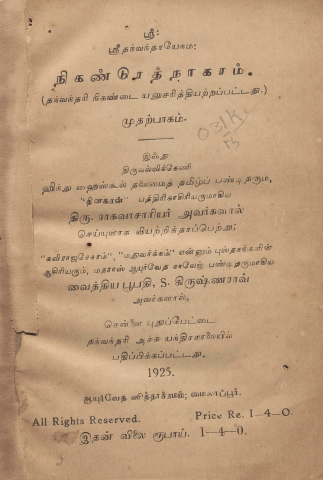 ஸ்ரீ:
ஸ்ரீதந்வந்தரயேநம:
நிகண்டுரத்நாகரம்.
(தந்வந்தரி நிகண்டை யனுசரித்தியற்றப்பட்டது.)
முதற்பாகம்.
031k
இஃது
திருவல்லிக்கேணி
ஹிந்து ஹைஸ்கூல் தலைமைத் தமிழ்ப் பண்டிதரும்,
"தினகரன்" பத்திரிகாசிரியருமாகிய
திரு. ராகவாசாரியர் அவர்களால்
செய்யுளாக வியற்றிக்தரப்பெற்று;
"கவிராஜசேகரம்", என்னும் புஸ்தகங்களின்
ஆசிரியரும், மதராஸ் ஆயுர்வேத காலேஜ் பண்டிதருமாகிய
வைத்திய பூபதி, S. கிருஷ்ணராவ்
அவர்களால்,
சென்னை புதுப்பேட்டை
தந்வந்தரி அச்சு யந்திரசாலையில்
பதிப்பிக்கப்பட்டது.
1925.
ஆயுர்வேத மைலாப்பூர்.
All Rights Reserved. Price Re. 1-4-0.
இதன் விலை ரூபாய். 1-4-0.